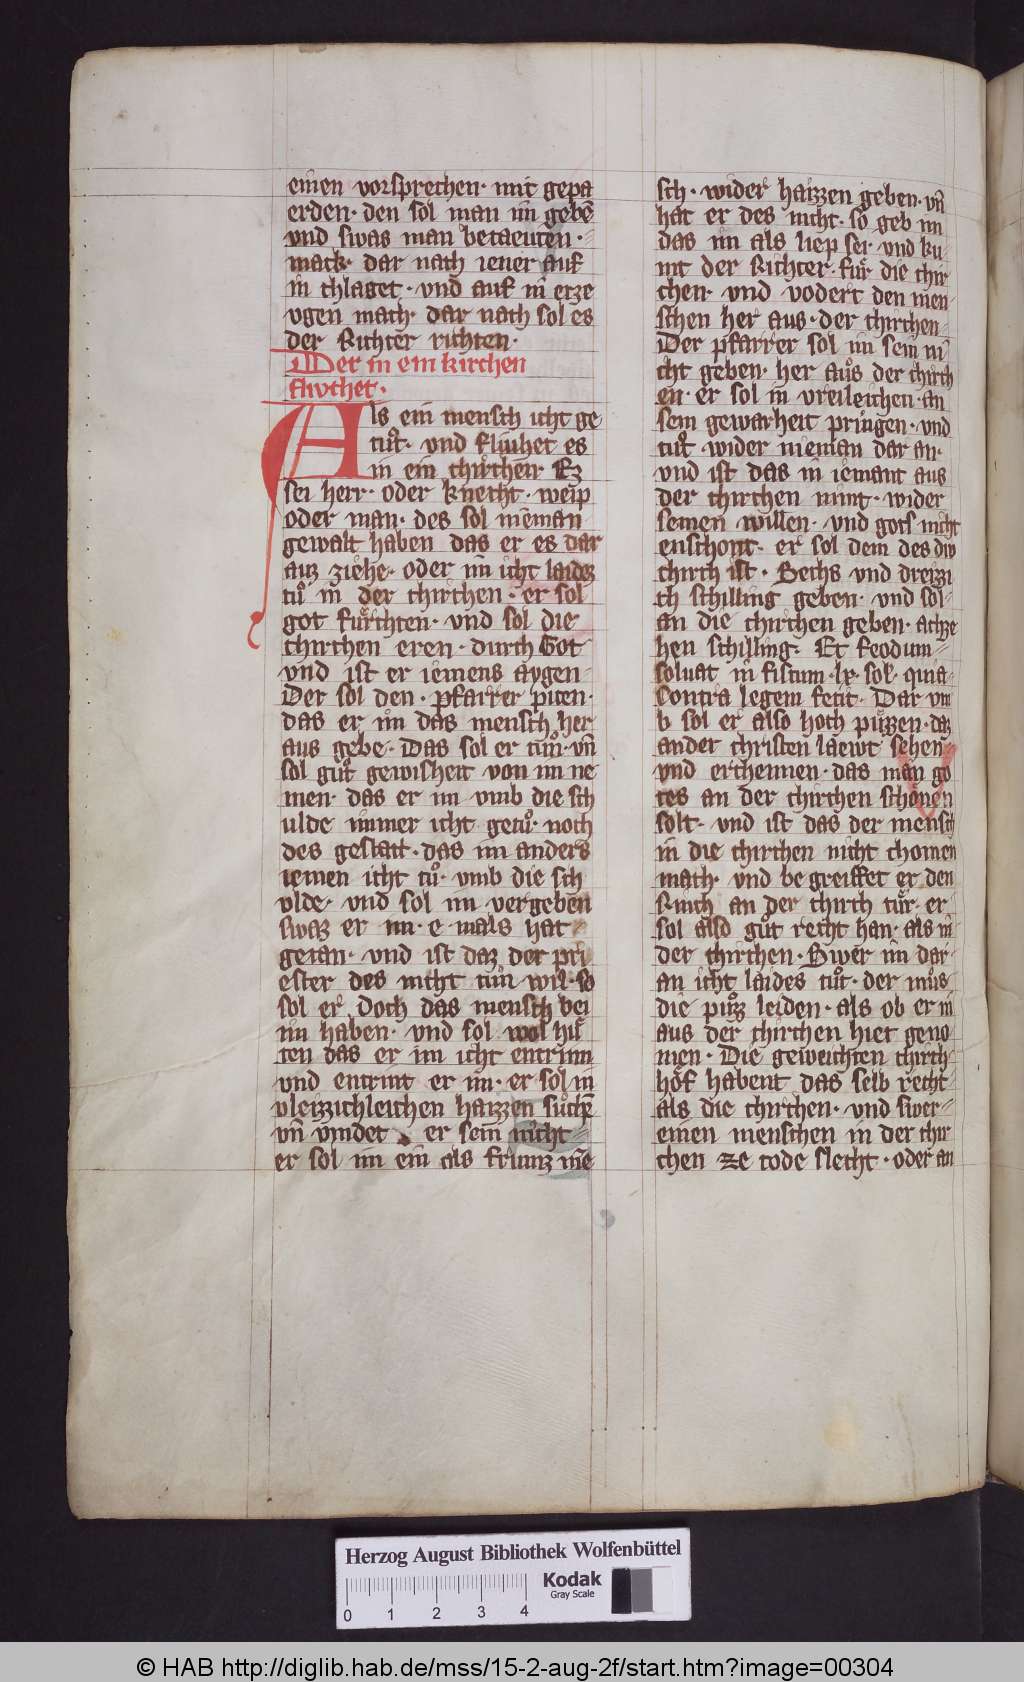 einen vorsprechen· mit gepa
erden· den sol man im gebē
vnd swas man betaeuten·
mack· dar nach iener auf
in chlaget· vnd auf in erze
vgen mach· dar nach sol es
der Richter richten·
Wer in ein kirchen
flivchet·
Als ein mensch icht ge
tuͦt· vnd fliuhet es
in ein chirchen· Ez
sei herr· oder knecht· weip
oder man· des sol nieman
gewalt haben das er es dar
auz ziehe· oder im icht laidez
tuͦ in der chirchen· er sol
got fuͤrchten· vnd sol die
chirchen eren· durch Got
vnd ist er iemens aygen
Der sol den· pfarrer piten·
das er im das mensch her
aus gebe· Das sol er tuͦn· vn̄
sol guͦt gewisheit von im ne
men· das er im vmb die sch
ulde immer icht getuͦ· noch
des gestatt· das im anders
iemen icht tuͦ· vmb die sch
vlde· vnd sol im vergeben
swaz er im· e· mals hat
getan· vnd ist daz der pri
ester des nicht tuͦn wil· so
sol er doch das mensch bei
im haben· vnd sol wol huͤ
ten das er im icht entrinn
vnd entrint er im· er sol in
vleizzichleichen haizzen suͦchē
vn̄ vindet er sein nicht
er sol im ein als friunz mē
sch· wider haizzen geben· vn̄
hat er des nicht· so geb im
das im als liep sei· vnd ku
mt der Richter· fuͤr die chir
chen· vnd vodert den men
schen her aus· der chirchen
Der pfarrer sol im sein ni
cht geben· her auͦs der chirch
en· er sol in vreileichen· an
sein gewarheit pringen· vnd
tuͦt· wider nieman dar an·
vnd ist das in iemant aus
der chirchen nimt· wider
seinen willen· vnd gots nicht
enschont· er sol dem des div
chirch ist· Sechs vnd dreizzi
ch schilling geben· vnd sol
an die chirchen geben· achze
hen schilling· Et feodum
soluat in fiscum· lx· sol· quia
Contra legem fecit· Dar vm
b sol er also hoch puͤzzen· daz
ander christen laewt sehen
vnd erchennen· das man go
tes an der chirchen schonen
solt· vnd ist das der mensch
in die chirchen nicht chomen
mach· vnd be greiffet er den
Rinch an der chirch tuͤr· er
sol also guͦt recht han· als in
der chirchen· Swer im dar
an icht laides tuͦt· der muͦs
die puͦzz leiden· als ob er in
aus der chirchen hiet geno
men· Die geweichten chirch
hoͤf habent das selb recht
als die chirchen· vnd swer
einen menschen in der chir
chen ze tode slecht· oder an
Herzog August Bibliothek Wolfenbüttel
Kodak
Gray Scale
0 1 2 3 4
© HAB http://diglib.hab.de/mss/15-2-aug-2f/start.htm?image=00304